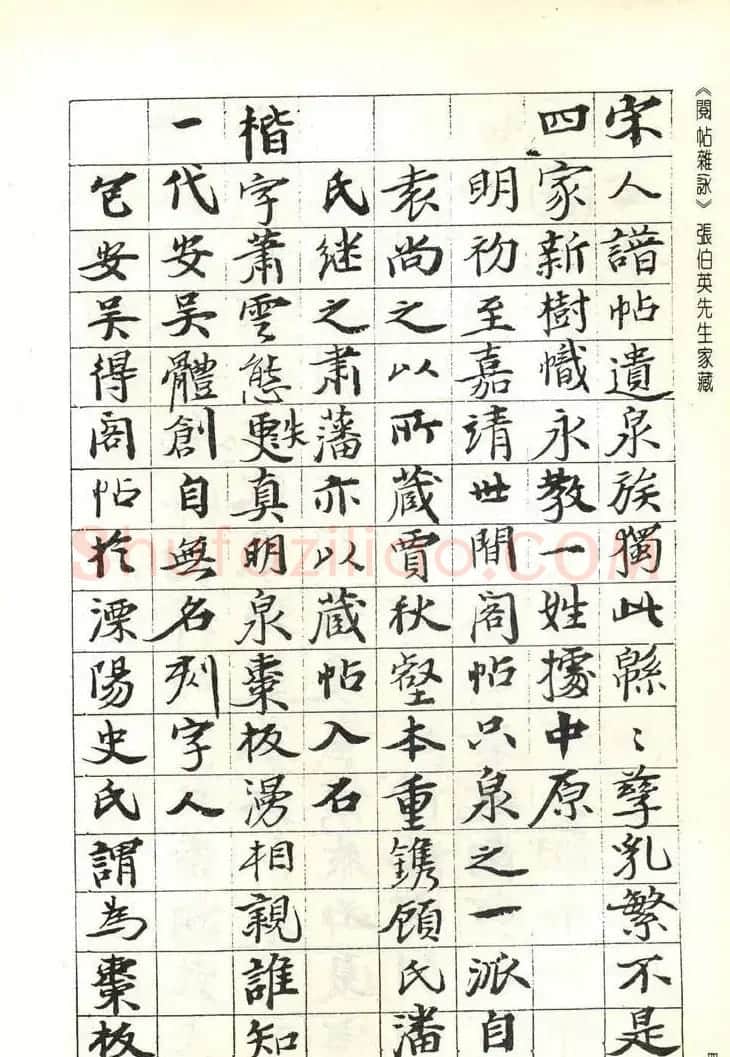 《閱帖雜詠》 張伯英先生家藏
宋人譜帖遺泉族獨此緜〻孳乳繁不是
四家新樹幟永教一姓據中原
明初至嘉靖世間閣帖只泉之一派自
袁尚之以所蔵賈秋壑本重鐫顧氏潘
氏継之肅藩亦以蔵帖入石
楷字蕭雲態更失真明泉棗板漫相親誰知
一代安吳體創自無名刻字人
包安吳得閣帖於溧陽史氏謂為棗板
Shufaziliao.com